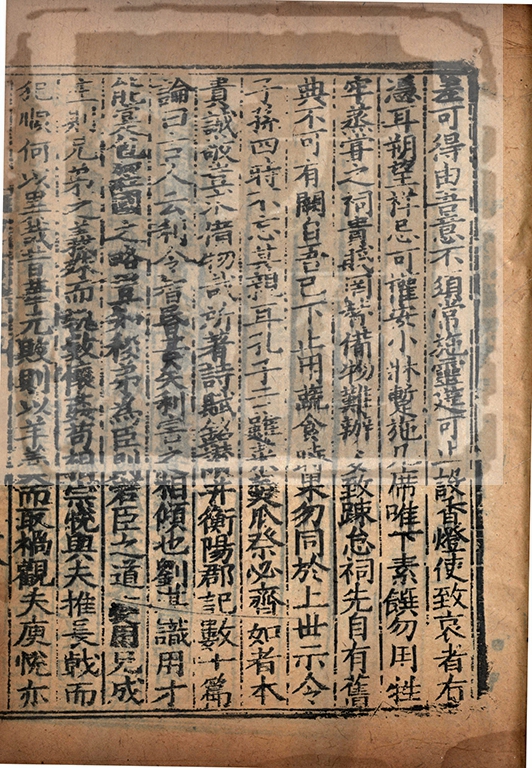 並可得由吾意不須常施靈筵可止設香燈使致哀者有
憑耳朔望祥忌可權安小牀暫施几席唯下素饌勿用牲
牢蒸甞之祠貴賤罔替備物難辦多致踈怠祠先自有舊
典不可有闕自吾已下止用蔬食時果勿同於上世示令
子孫四時不忘其親耳孔子云雖菜羹瓜祭必齊如者本
貴誠敬豈求備物哉所著詩賦銘讚并衡陽郡記數十篇
論曰古人云利令智昏甚矣利害之相傾也劉湛識用才
能實苞經國之略豈知移弟為臣則君臣之道用變兄成
主則兄弟之義殊而執數懷姦苟相崇悅與夫推長戟而
犯順何以異哉昔華元敗則以羊羹而取禍觀夫庾悅亦